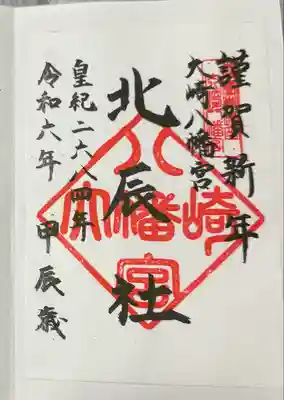 謹賀新年
大崎八幡宮
北辰社
皇紀二六八四年
令和六年 甲辰歳
大崎八幡宮